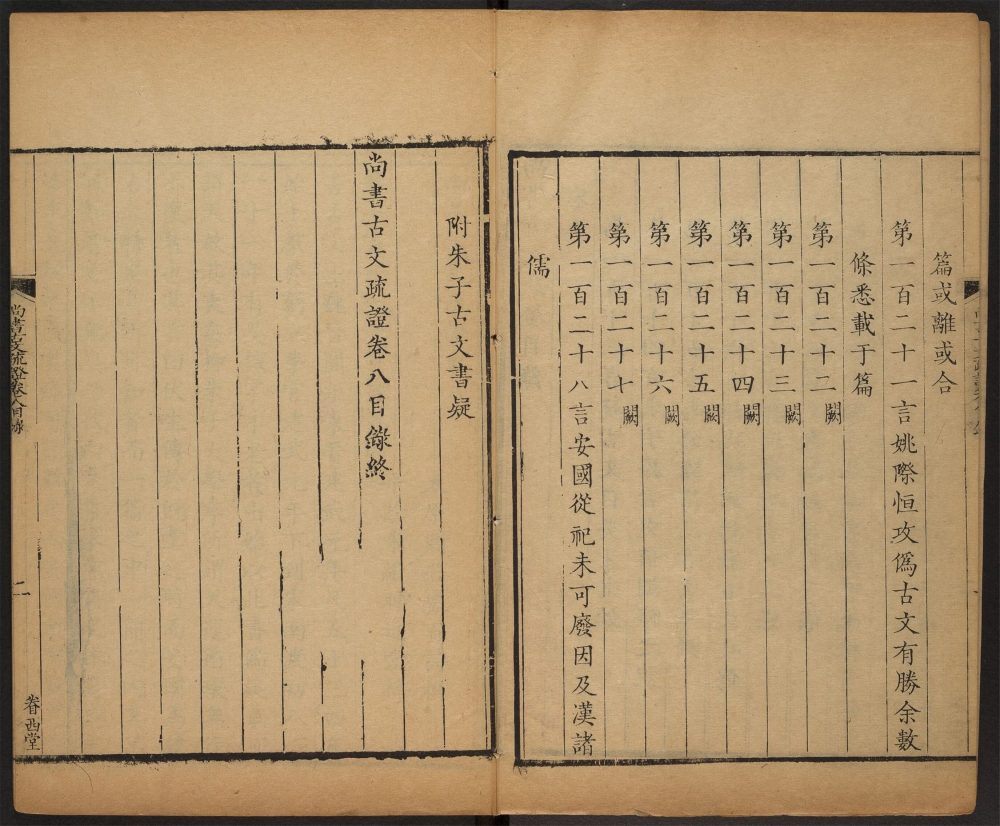 篇或離或合
第一百二十一言姚際恒攻僞古文有勝余數
條悉載于篇
第一百二十二 闕
第一百二十三 闕
第一百二十四 闕
第一百二十五 闕
第一百二十六 闕
第一百二十七 闕
第一百二十八言安國從祀未可廢因及漢諸
儒
附朱子古文書疑
尚書古文疏證卷八目錄終
尚書古文疏證卷八目錄
二
眷西堂